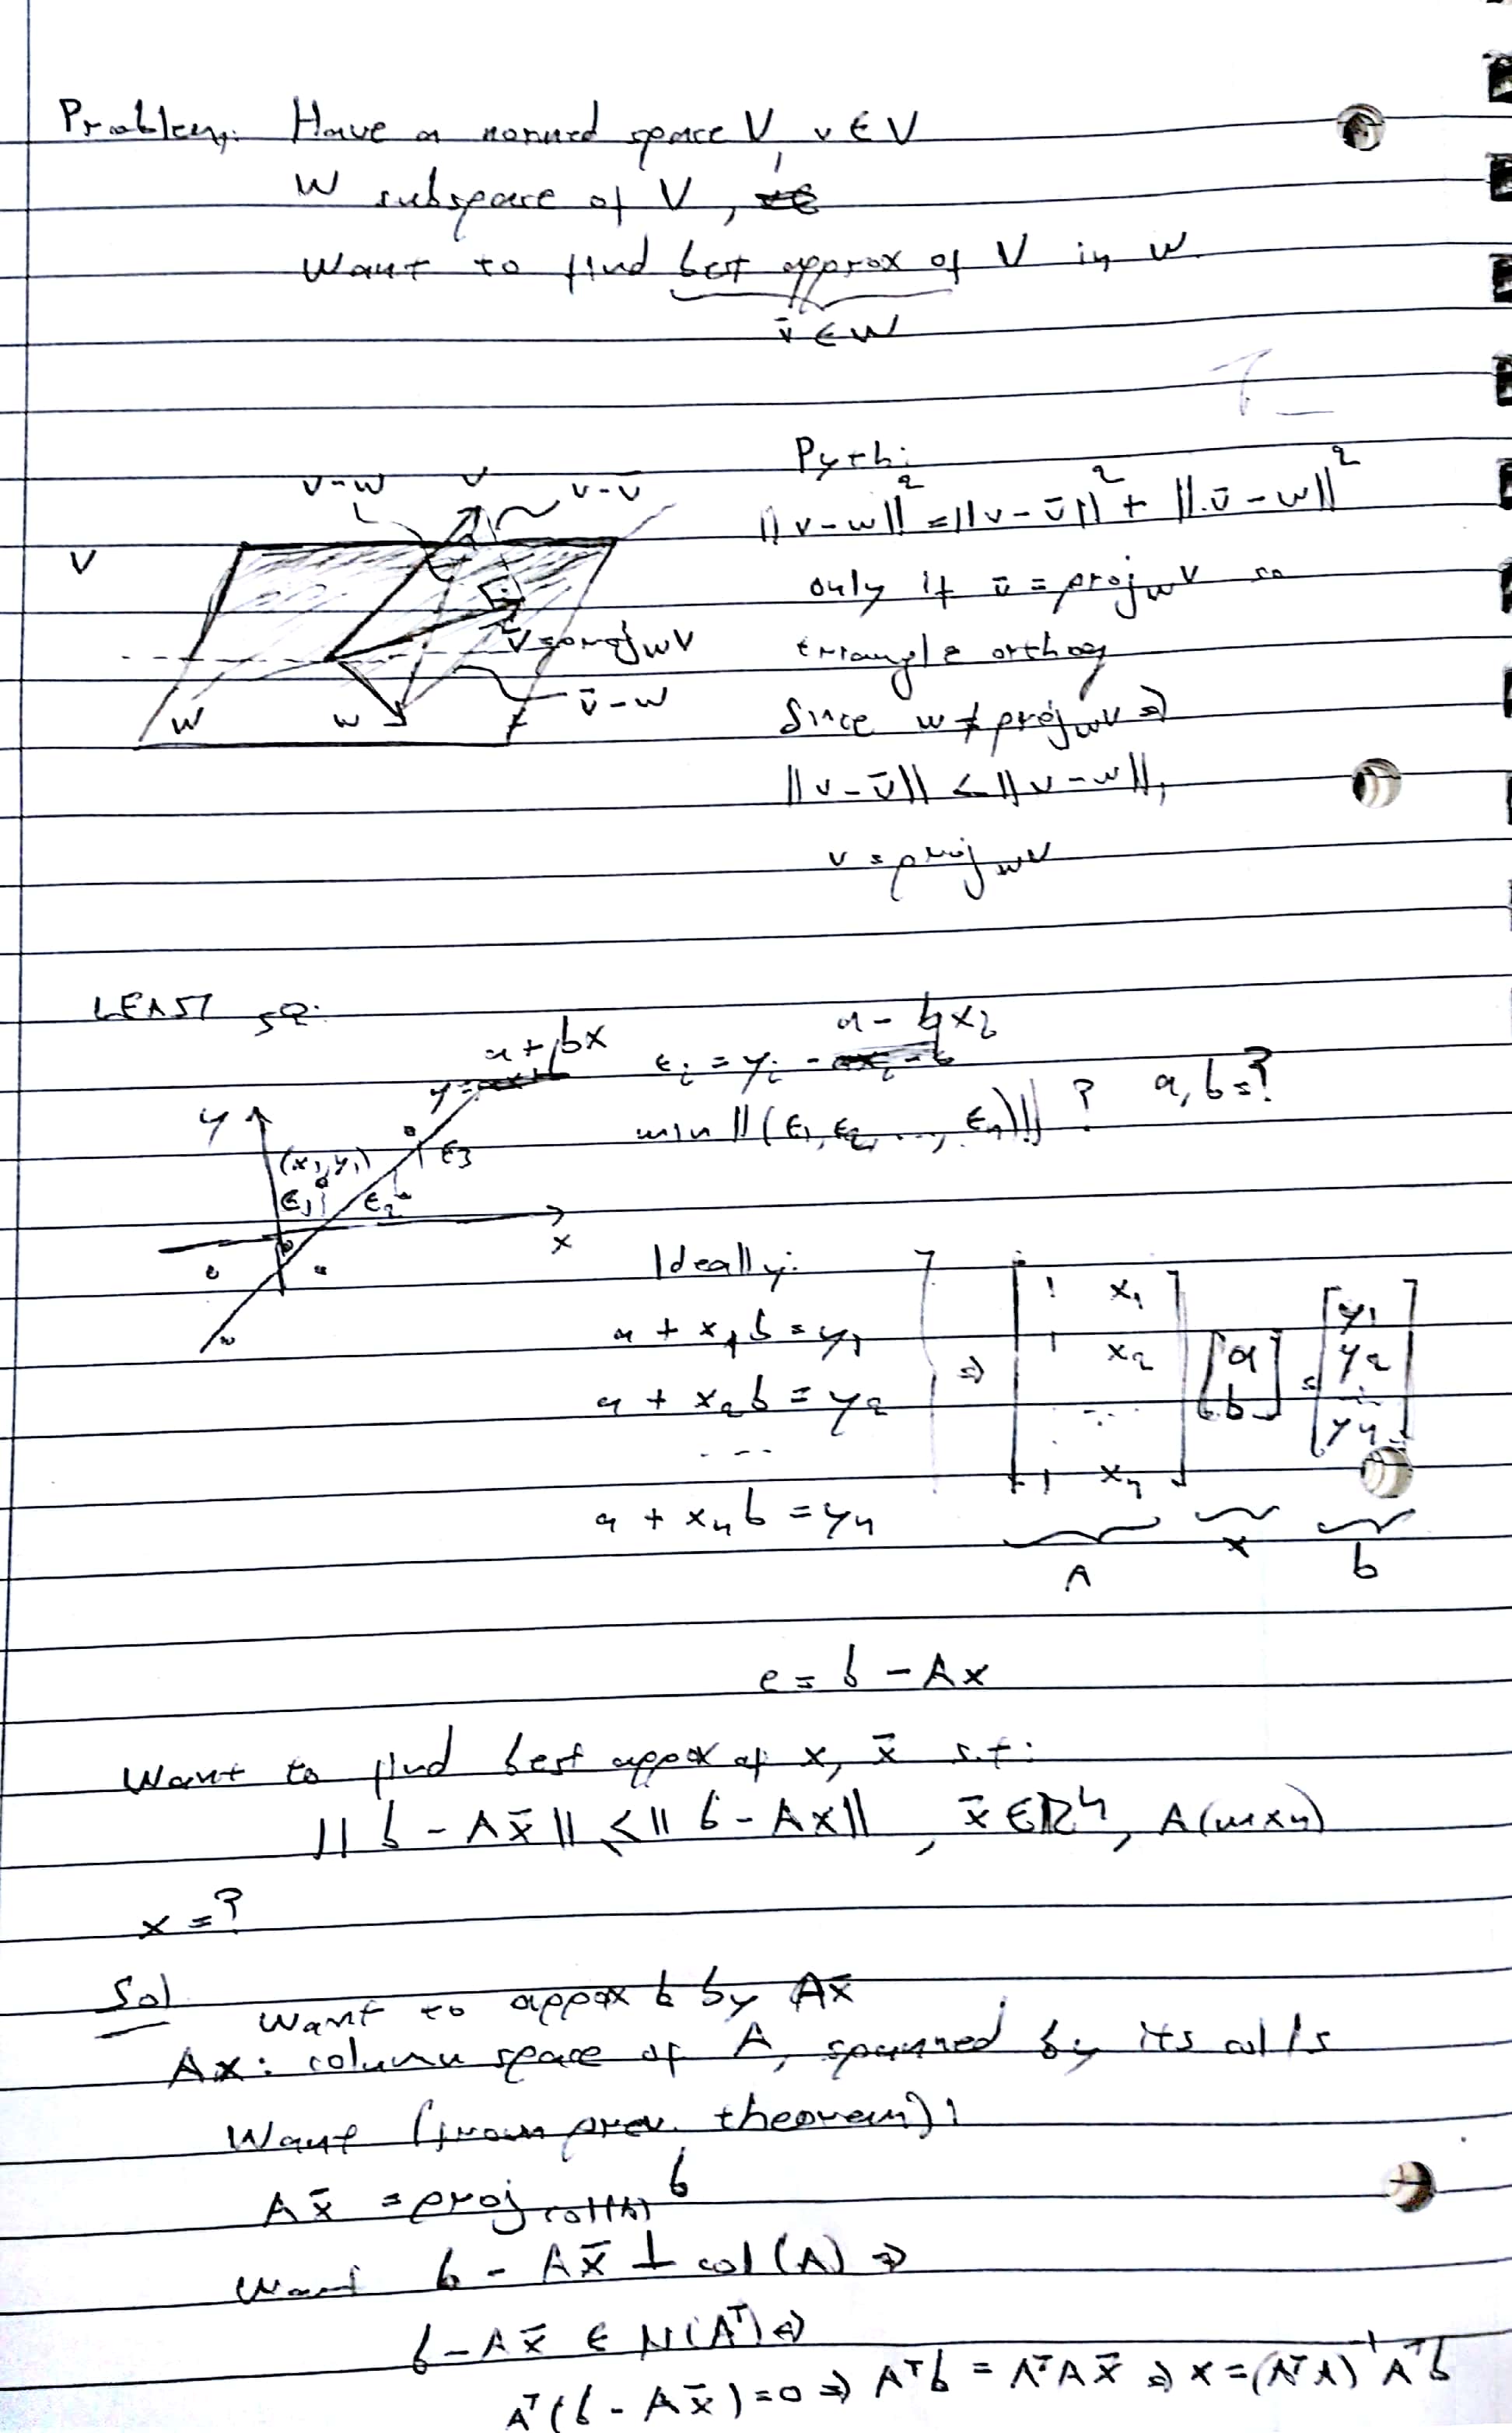 Problem: Have a normed space V, v ∈ V
W subspace of V,
Want to find best approx of V in W
v̄ ∈ W
Pyth:
v-w v v-v̄
||v-w||² = ||v-v̄||² + ||v̄-w||²
V
only if v̄ = proj_W V so
v̄ = proj_W V
triangle orthog
v̄-w
W w
Since w ≠ proj_W V ⇒
||v-v̄|| < ||v-w||,
v = proj_W V
LEAST SQ:
a+bx
y=
a - b x_i
ε_i = y_i -
a, b = ?
y
min ||(ε_1, ε_2, ..., ε_n)|| ?
(x_1, y_1) ε_3
ε_1 ε_2
x
Ideally:
a + x_1 b = y_1
a + x_2 b = y_2
...
a + x_n b = y_n
⇒ [1 x_1; 1 x_2; ...; 1 x_n] [a; b] = [y_1; y_2; ...; y_n]
A x b
e = b - Ax
Want to find best appox of x, x̄ s.t:
||b - Ax̄|| < ||b - Ax||, x̄ ∈ ℝⁿ, A(m×n)
x = ?
Sol
Want to appox b by Ax̄
Ax: column space of A, spanned by its col/s
Want (from prev. theorem):
Ax̄ = proj_col(A) b
Want b - Ax̄ ⊥ col(A) ⇒
b - Ax̄ ∈ N(Aᵀ) ⇔
Aᵀ(b - Ax̄) = 0 ⇒ Aᵀb = AᵀAx̄ ⇒ x = (AᵀA)⁻¹Aᵀb